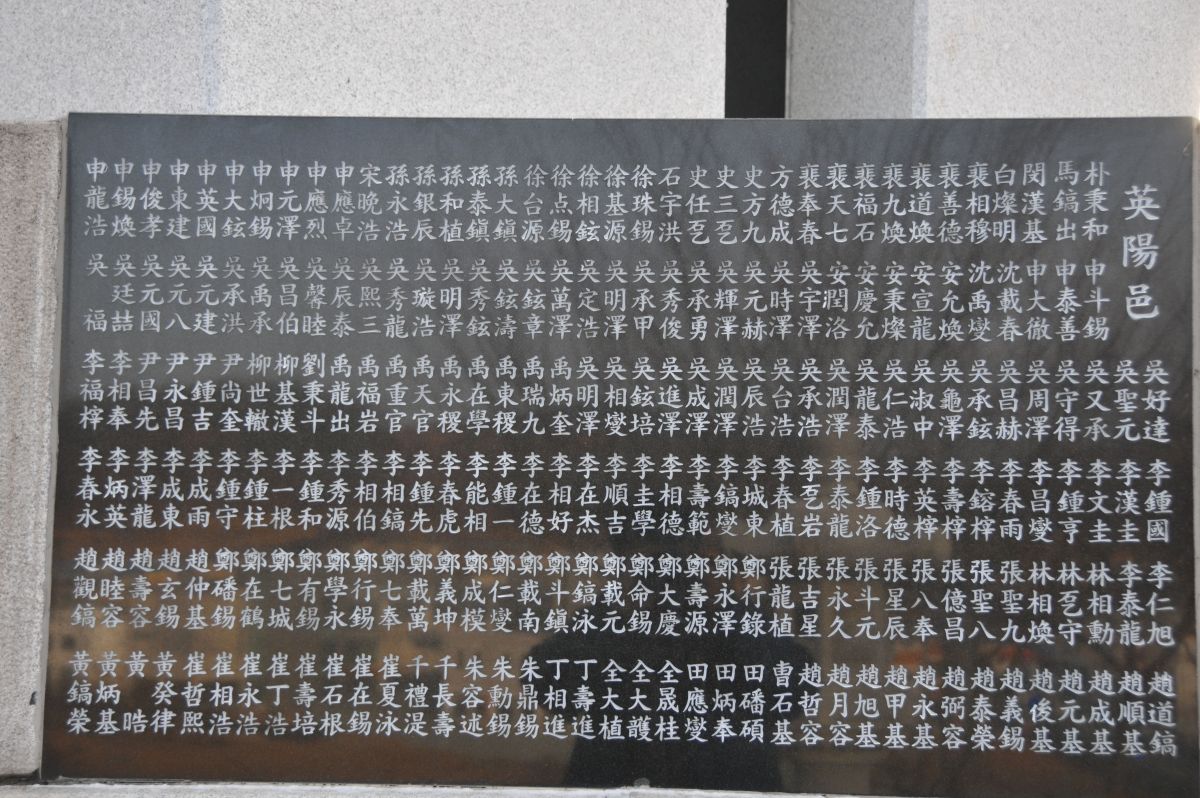 英陽邑
朴秉和 馬鎬出 閔漢基 白燦明 裵相穆 裵善德 裵道煥 裵九煥 裵福石 裵天七 裵奉春 方德成 史方九 史三乭 史任乭 石宇洪 徐珠錫 徐基源 徐相鉉 徐点錫 徐台源 孫大鎮 孫泰鎮 孫和植 孫銀辰 孫永浩 宋晩浩 申應卓 申應烈 申元澤 申炯錫 申大鉉 申英國 申東建 申俊孝 申錫煥 申龍浩
申斗錫 申泰善 申大徹 沈載春 沈禹燮 安允煥 安宣龍 安秉燦 安慶允 安潤洛 吳宇澤 吳時澤 吳元赫 吳輝澤 吳承勇 吳秀俊 吳承甲 吳明澤 吳定浩 吳萬澤 吳鉉章 吳鉉濤 吳秀鉉 吳明澤 吳璇浩 吳秀龍 吳熙三 吳辰泰 吳馨睦 吳昌伯 吳禹承 吳承洪 吳元建 吳元八 吳元國 吳廷喆 吳福
吳好達 吳聖元 吳又承 吳守得 吳周澤 吳昌赫 吳承鉉 吳龜澤 吳淑中 吳仁浩 吳龍泰 吳潤澤 吳承浩 吳台浩 吳辰浩 吳潤澤 吳成澤 吳進澤 吳鉉培 吳相燮 吳明澤 禹炳奎 禹瑞九 禹東稷 禹在學 禹永稷 禹天官 禹重官 禹福岩 禹龍出 劉秉斗 柳基漢 柳世轍 尹尚奎 尹鍾吉 尹永昌 尹昌先 李相奉 李福榟
李鍾國 李漢圭 李文圭 李鍾亨 李昌燮 李春雨 李鎔榟 李壽榟 李英榟 李時德 李鍾洛 李泰龍 李乭岩 李春植 李城東 李鎬燮 李壽範 李相德 李圭學 李順吉 李在杰 李相好 李在德 李鍾一 李能相 李春虎 李鍾先 李相鎬 李相伯 李秀源 李鍾和 李一根 李鍾柱 李鍾守 李成雨 李成東 李澤龍 李炳英 李春永
李仁旭 李泰龍 林相勳 林乭守 林相煥 張聖九 張聖八 張億昌 張八奉 張星辰 張斗元 張永久 張吉星 張龍植 鄭行錄 鄭永澤 鄭壽源 鄭大慶 鄭命錫 鄭載元 鄭鎬泳 鄭斗鎮 鄭載南 鄭仁燮 鄭成模 鄭義坤 鄭載萬 鄭七奉 鄭行錫 鄭學永 鄭有錫 鄭七城 鄭在鶴 鄭磻錫 趙仲基 趙玄錫 趙壽容 趙睦容 趙觀鎬
趙道鎬 趙順基 趙成基 趙元基 趙後基 趙義錫 趙泰榮 趙弼容 趙永基 趙甲基 趙旭基 趙月容 趙哲容 曺石基 田磻碩 田炳奉 田應燮 全晟柱 全大護 全大植 丁壽進 丁相進 朱鼎錫 朱勳錫 朱容述 千長壽 千禮湜 崔夏泳 崔在錫 崔石根 崔壽培 崔丁浩 崔永浩 崔相浩 崔哲熙 黃癸律 黃晧 黃炳基 黃鎬榮